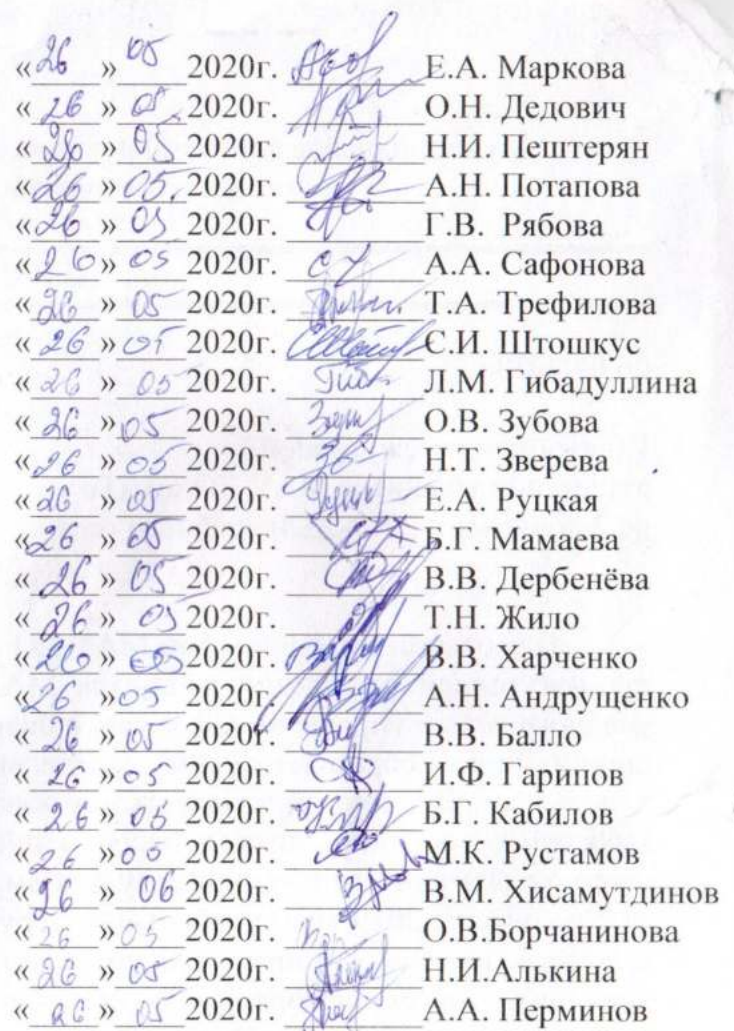 «26» 05 2020г. Е.А. Маркова
«26» 05 2020г. О.Н. Дедович
«26» 05 2020г. Н.И. Пештерян
«26» 05. 2020г. А.Н. Потапова
«26» 05 2020г. Г.В. Рябова
«26» 05 2020г. А.А. Сафонова
«26» 05 2020г. Т.А. Трефилова
«26» 05 2020г. С.И. Штошкус
«26» 05 2020г. Л.М. Гибадуллина
«26» 05 2020г. О.В. Зубова
«26» 05 2020г. Н.Т. Зверева
«26» 05 2020г. Е.А. Руцкая
«26» 05 2020г. Б.Г. Мамаева
«26» 05 2020г. В.В. Дербенёва
«26» 05 2020г. Т.Н. Жило
«26» 05 2020г. В.В. Харченко
«26» 05 2020г. А.Н. Андрущенко
«26» 05 2020г. В.В. Балло
«26» 05 2020г. И.Ф. Гарипов
«26» 05 2020г. Б.Г. Кабилов
«26» 05 2020г. М.К. Рустамов
«26» 06 2020г. В.М. Хисамутдинов
«26» 05 2020г. О.В.Борчанинова
«26» 05 2020г. Н.И.Алькина
«26» 05 2020г. А.А. Перминов